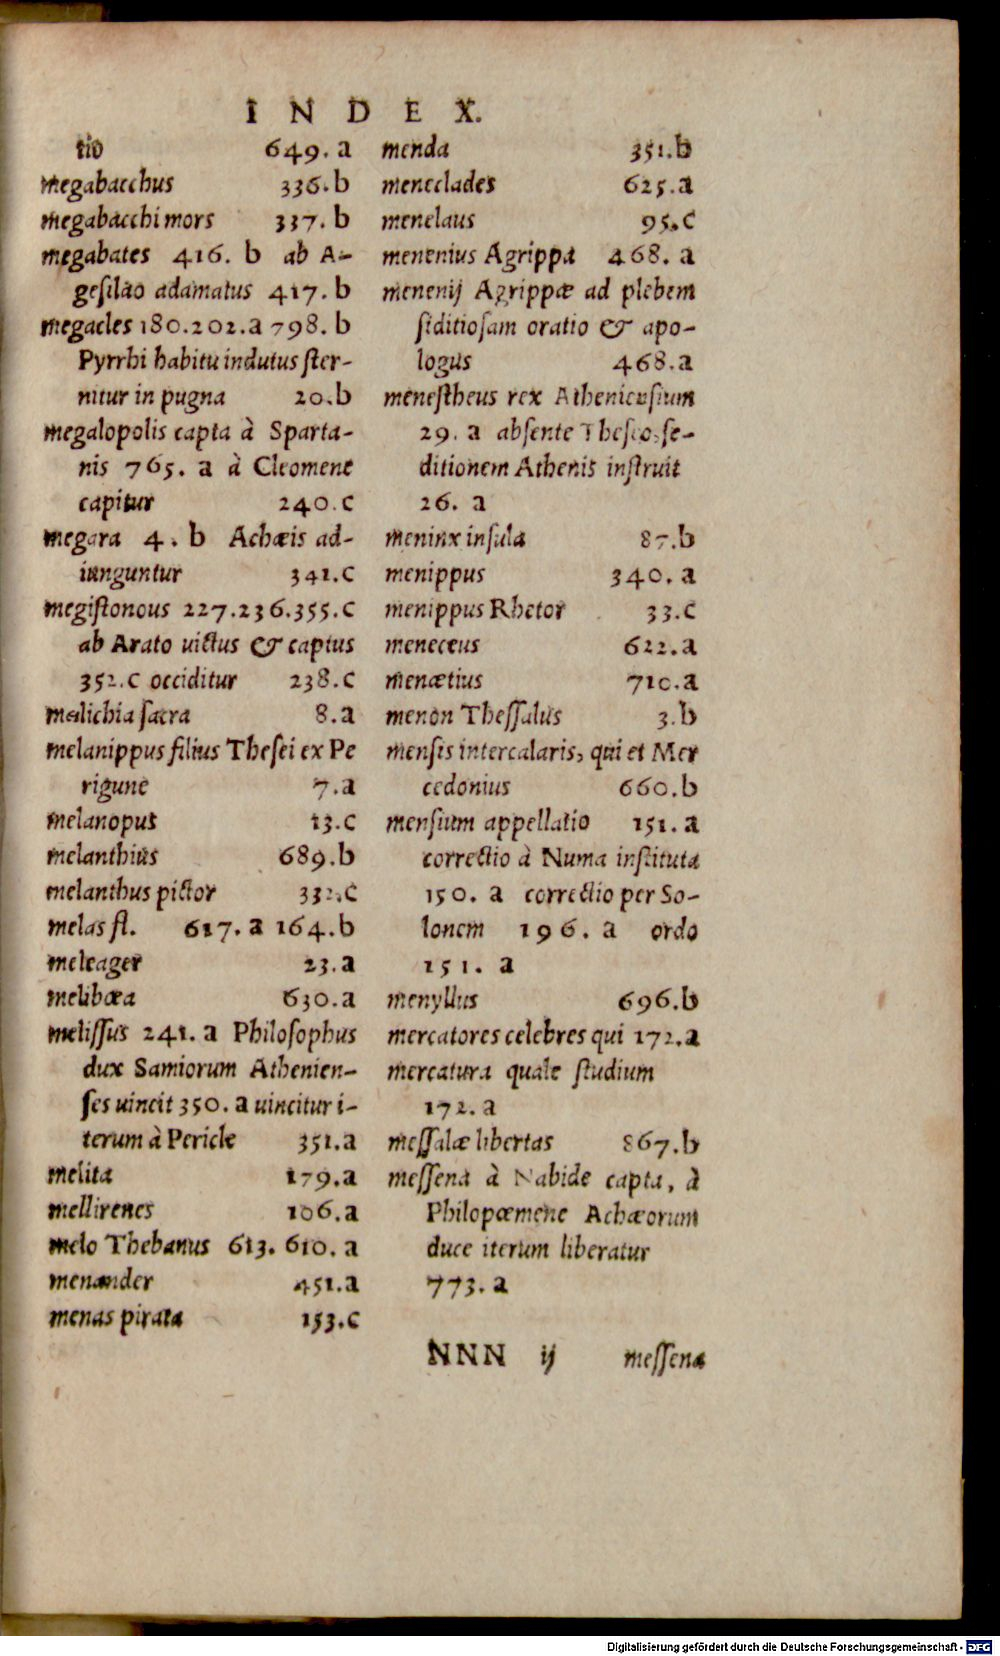 INDEX.
tio 649. a
megabacchus 336. b
megabacchi mors 337. b
megabates 416. b ab A-
gesilao adamatus 417. b
megacles 180. 202. a 798. b
Pyrrhi habitu indutus ster-
nitur in pugna 20. b
megalopolis capta à Sparta-
nis 765. a à Cleomene
capitur 240. c
megara 4. b Achæis ad-
iunguntur 341. c
megistonous 227. 236. 355. c
ab Arato uictus & captus
352. c occiditur 238. c
melichia sacra 8. a
melanippus filius Thesei ex Pe
rigune 7. a
melanopus 13. c
melanthius 689. b
melanthus pictor 332. c
melas fl. 617. a 164. b
meleager 23. a
melibœa 630. a
melissus 241. a Philosophus
dux Samiorum Athenien-
ses uincit 350. a uincitur i-
terum à Pericle 351. a
melita 179. a
mellirenes 106. a
melo Thebanus 613. 610. a
menander 451. a
menas pirata 153. c
menda 351. b
meneclades 625. a
menelaus 95. c
menenius Agrippa 468. a
menenij Agrippæ ad plebem
siditiosam oratio & apo-
logus 468. a
menestheus rex Atheniensium
29. a absente Theseo, se-
ditionem Athenis instruit
26. a
meninx insula 87. b
menippus 340. a
menippus Rhetor 33. c
meneceus 622. a
menætius 710. a
menon Thessalus 3. b
mensis intercalaris, qui et Mer
cedonius 660. b
mensium appellatio 151. a
correctio à Numa instituta
150. a correctio per So-
lonem 196. a ordo
151. a
menyllus 696. b
mercatores celebres qui 172. a
mercatura quale studium
172. a
messalæ libertas 867. b
messena à Nabide capta, à
Philopœmene Achæorum
duce iterum liberatur
773. a
NNN ij messena
Digitalisierung gefördert durch die Deutsche Forschungsgemeinschaft - DFG